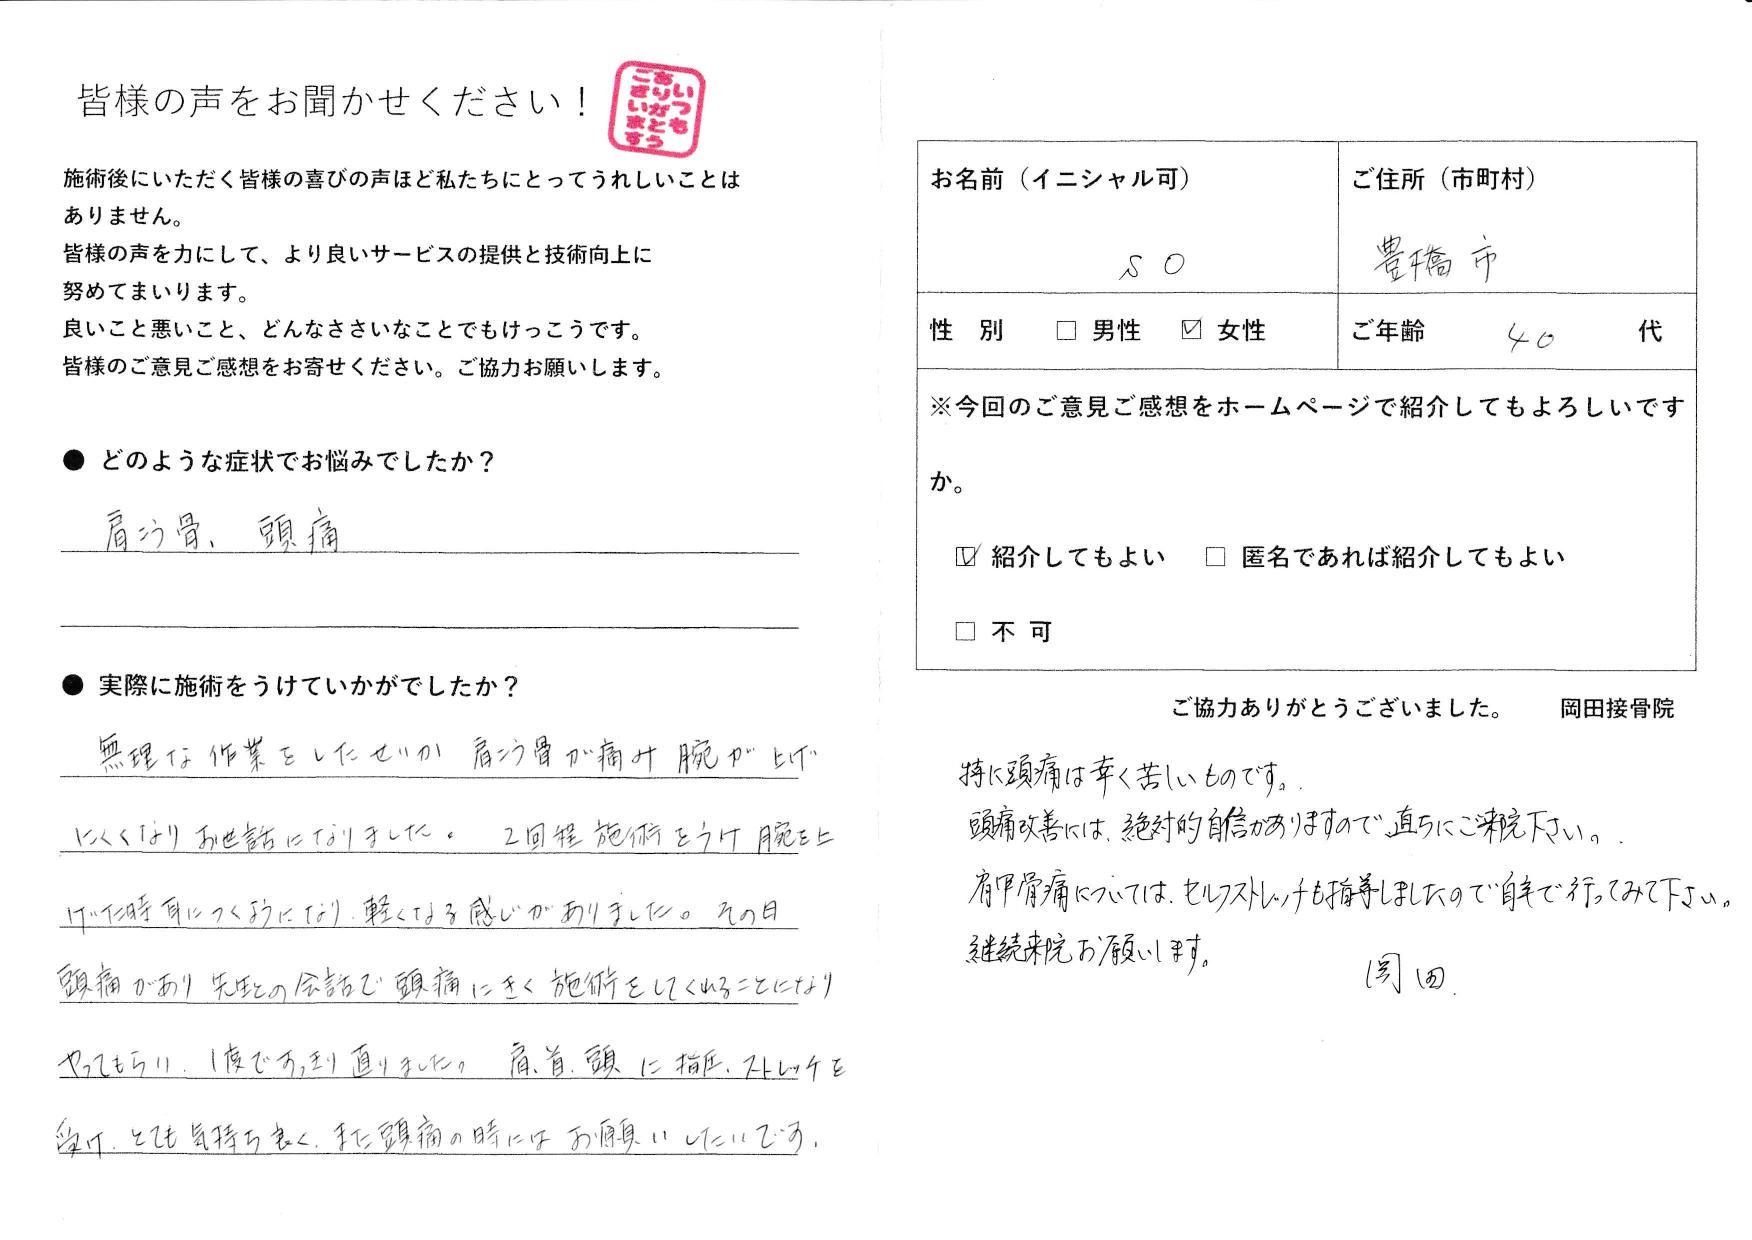 皆様の声をお聞かせください！
いつも
ありがとう
ございます
施術後にいただく皆様の喜びの声ほど私たちにとってうれしいことは
ありません。
皆様の声を力にして、より良いサービスの提供と技術向上に
努めてまいります。
良いこと悪いこと、どんなささいなことでもけっこうです。
皆様のご意見ご感想をお寄せください。ご協力お願いします。
● どのような症状でお悩みでしたか？
肩こう骨、頭痛
● 実際に施術をうけていかがでしたか？
無理な作業をしたせいか 肩こう骨が痛み 腕が上げ
にくくなりお世話になりました。 2回程施術をうけ腕を上
げた時耳につくようになり、軽くなる感じがありました。その日
頭痛があり 先生との会話で頭痛にきく施術をしてくれることになり
やってもらい、1度ですっきり直りました。 肩、首、頭に指圧、ストレッチを
受け、とても気持ち良く、また頭痛の時にはお願いしたいです。
お名前（イニシャル可）
S O
ご住所（市町村）
豊橋市
性 別 □ 男性 ☑ 女性
ご年齢 40 代
※今回のご意見ご感想をホームページで紹介してもよろしいです
か。
☑ 紹介してもよい □ 匿名であれば紹介してもよい
□ 不 可
ご協力ありがとうございました。 岡田接骨院
特に頭痛は辛く苦しいものです。
頭痛改善には、絶対的自信がありますので、直ちにご来院下さい。
肩甲骨痛については、セルフストレッチも指導しましたので自宅で行ってみて下さい。
継続来院お願いします。
岡田